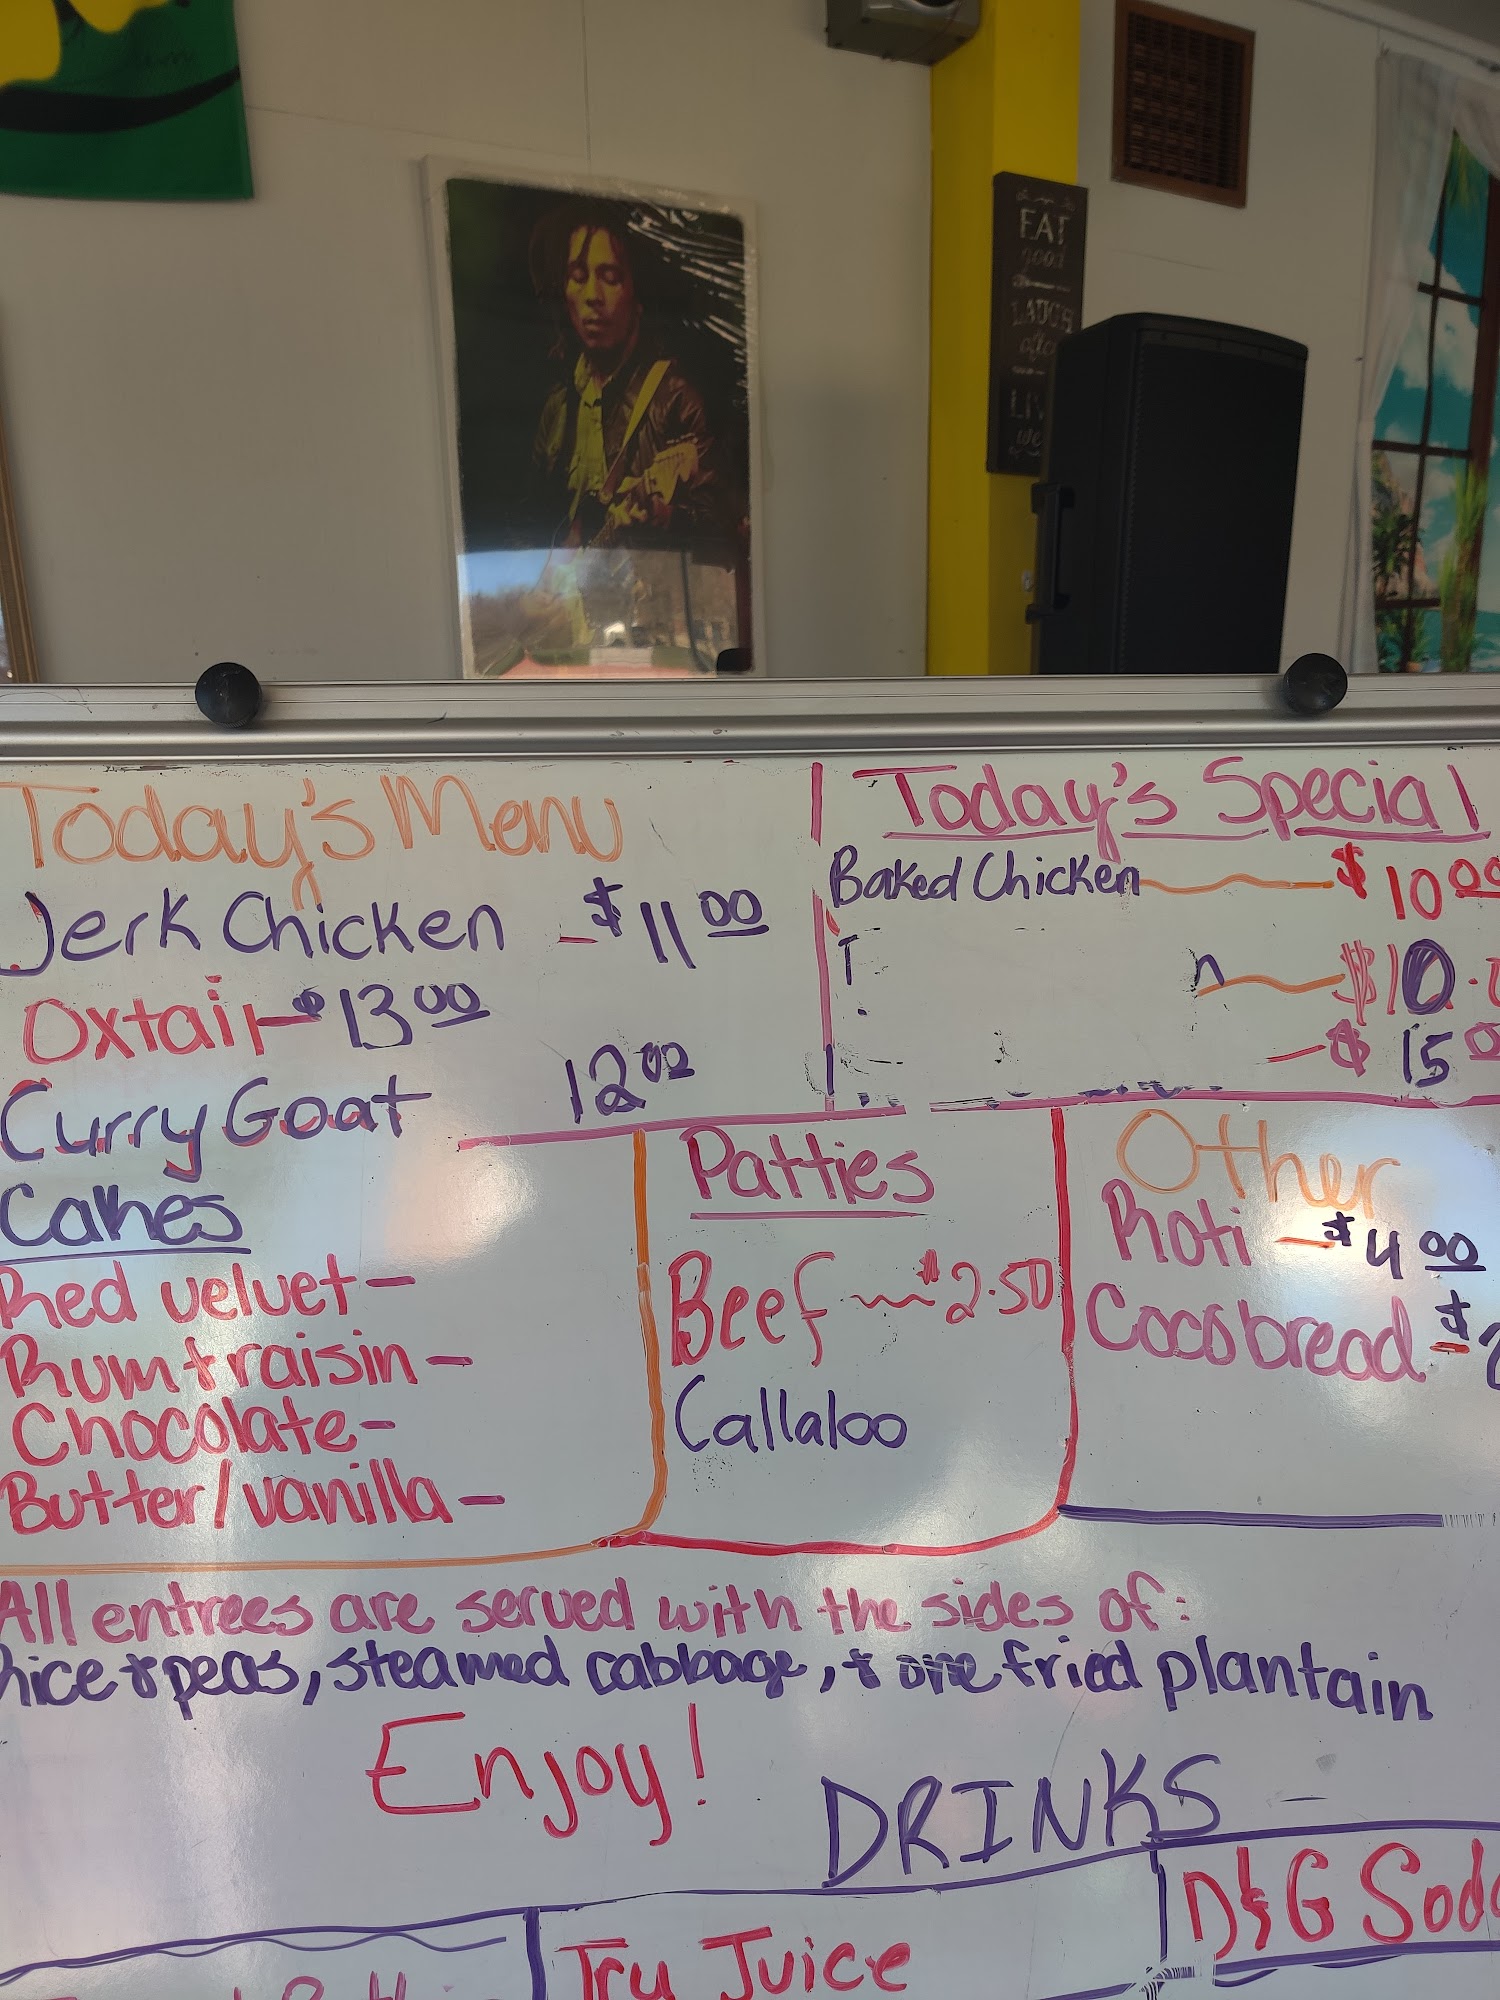 EAT
good
LAUGH
Today's Menu
Jerk Chicken - $11.00
Oxtail - $13.00
Curry Goat 12.00
Cakes
Red velvet -
Rum & raisin -
Chocolate -
Butter/vanilla -
Today's Special
Baked Chicken $10.00
$10.
$15
Patties
Beef $2.50
Callaloo
Other
Roti - $4.00
Coco bread - $
All entrees are served with the sides of:
Rice & peas, steamed cabbage, & one fried plantain
Enjoy!
DRINKS
Tru Juice
D&G Soda